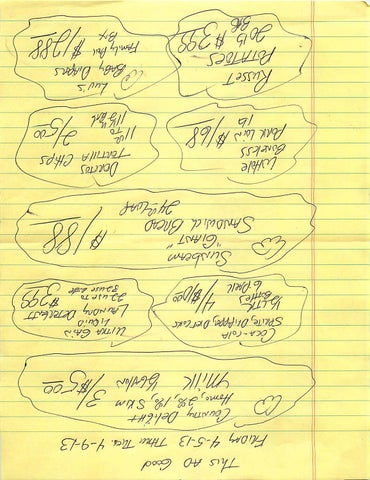 This AD Good
FRIDAY 4-5-13 Thru Tues. 4-9-13
Country Delight
Homo, 2%, 1%, Skim
Milk ½ Gallon 3/$5.00
Coca-cola
Sprite, Dr. Pepper, Diet Coke
½ LITR
Bottles
6 Pack 4/$10.00
Ultra Gain
Liquid
Laundry Detergent
22 use to
32 use size $3.99
Sunbeam
"GIANT"
Sandwich Bread
24oz Loaf $1.88
Whole
Boneless
Pork Loin $1.68
lb
Doritos
Tortilla Chips
11oz
TO
2/5.00
Russet
Potatoes
20 lb $3.99
Bag
Luv's
Baby Diapers
Family Pak
Box $12.88